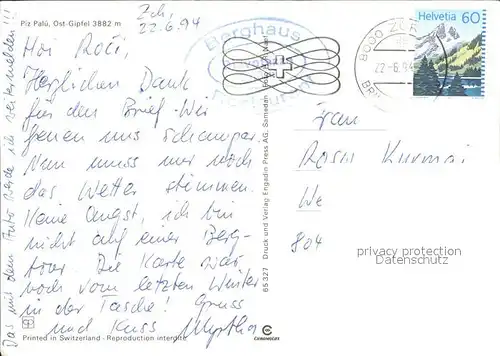 Piz Palü, Ost-Gipfel 3882 m
Zch,
22.6.94
Hoi Roci,
Herzlichen Dank
für den Brief. Wir
freuen uns schampar
Nun muss nur noch
das Wetter stimmen.
Keine Angst, ich bin
nicht auf einer Berg-
tour. Die Karte war
noch vom letzten Winter
in der Tasche! Gruss
und Kuss Myrtha
Das mit dem Auto werde ich !!!
Printed in Switzerland - Reproduction interdite
65.327 Druck und Verlag Engadin Press AG, Samedan
Berghaus
22-6.94
Helvetia 60
Frau
Rosi
We
804
privacy protection
Datenschutz